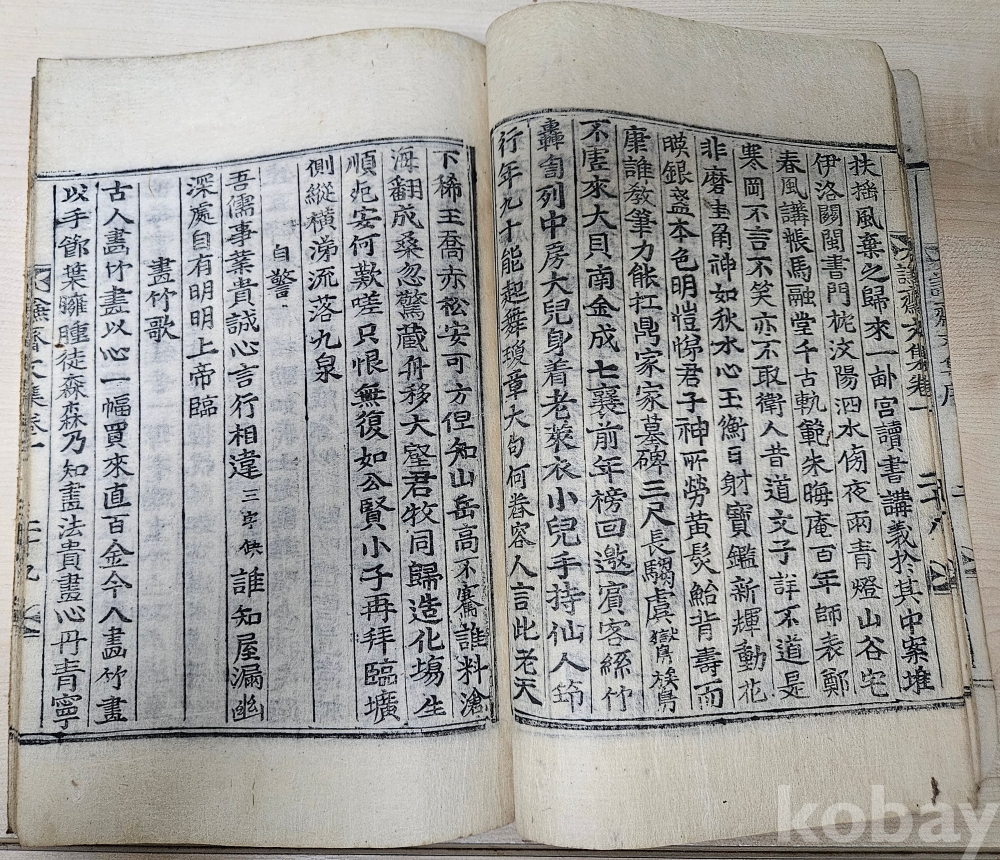 扶搖風棄之歸來一畝宮讀書講義於其中案堆
伊洛關閩書門枕汶陽泗水傍夜雨青燈山谷宅
春風講帳馬融堂千古軌範朱晦庵百年師表鄭
寒岡不言不笑亦不取衛人昔道文子詳不道是
非磨圭角神如秋水心玉衡日射寶鑑新輝動花
暎銀盞本色明愷悌君子神所勞黃髮鮐背壽而
康誰教筆力能扛鼎家家墓碑三尺長騶虞獄鳥族鳥
不虛來大貝南金成七襄前年榜回邀賓客絲竹
轟訇列中房大兒身着老萊衣小兒手持仙人節
行年九十能起舞瓊章大句何春容人言此老天
下稀王喬赤松安可方但知山岳高不騫誰料滄
海翻成桑忽驚藏舟移大壑君牧同歸造化場生
順死安何歎嗟只恨無復如公賢小子再拜臨壙
側縱橫涕流落九泉
自警
吾儒事業貴誠心言行相違三字缺誰知屋漏幽
深處自有明明上帝臨
畫竹歌
古人畫竹畫以心一幅買來直百金今人畫竹畫
以手節葉臃腫徒森森乃知畫法貴畫心丹青寧
齋文集卷一
二十八
齋文集卷一
二十九
kobay